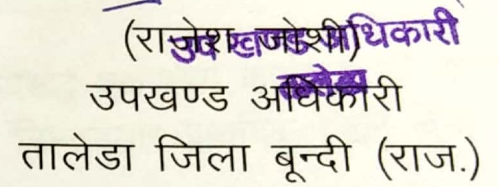 (राजेश जोशी)
उप खण्ड अधिकारी
तालेडा
उपखण्ड अधिकारी
तालेडा जिला बून्दी (राज.)